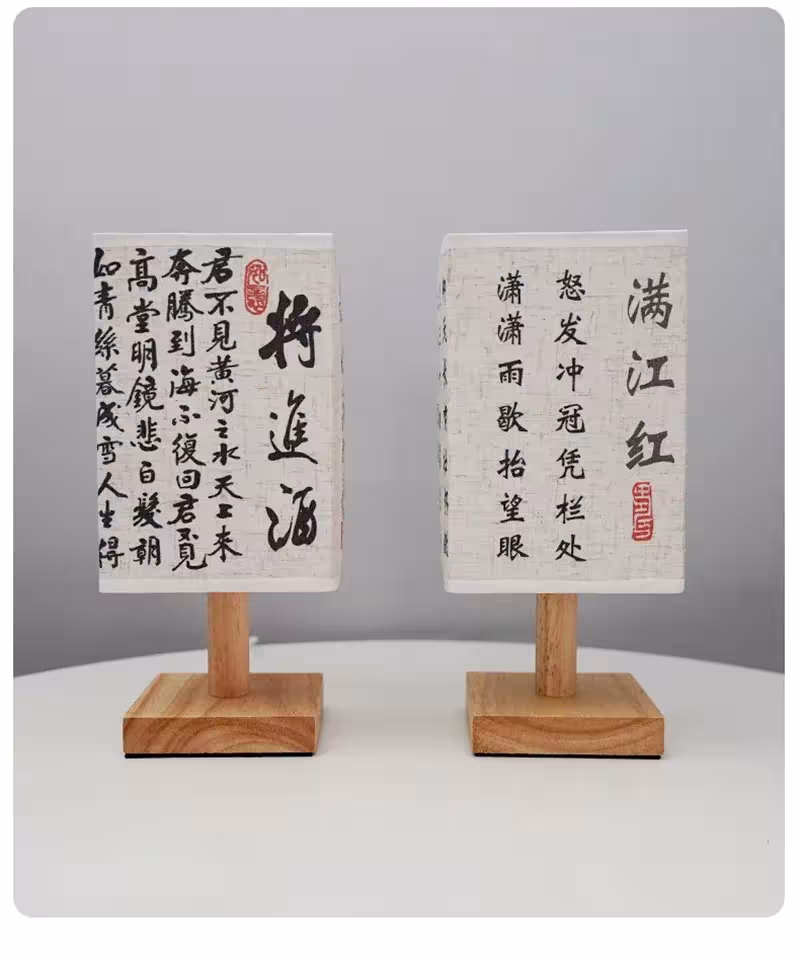 將進酒
君不見黄河之水天上来
奔騰到海不復回君不見
高堂明鏡悲白髮朝
如青絲暮成雪人生得
满江红
怒发冲冠凭栏处
潇潇雨歇抬望眼